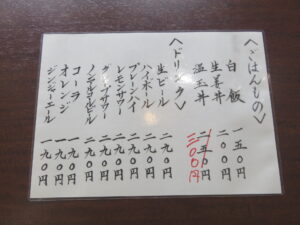 〈ごはんもの〉
白飯 一五〇円
生姜丼 二〇〇円
温玉丼 二五〇円 三〇〇円
〈ドリンク〉
生ビール 二九〇円
ハイボール 二九〇円
プレーンハイ 二九〇円
レモンサワー 二九〇円
グレープサワー 二九〇円
ノンアルコールビール 二九〇円
コーラ 一九〇円
オレンジ 一九〇円
ジンジャーエール 一九〇円